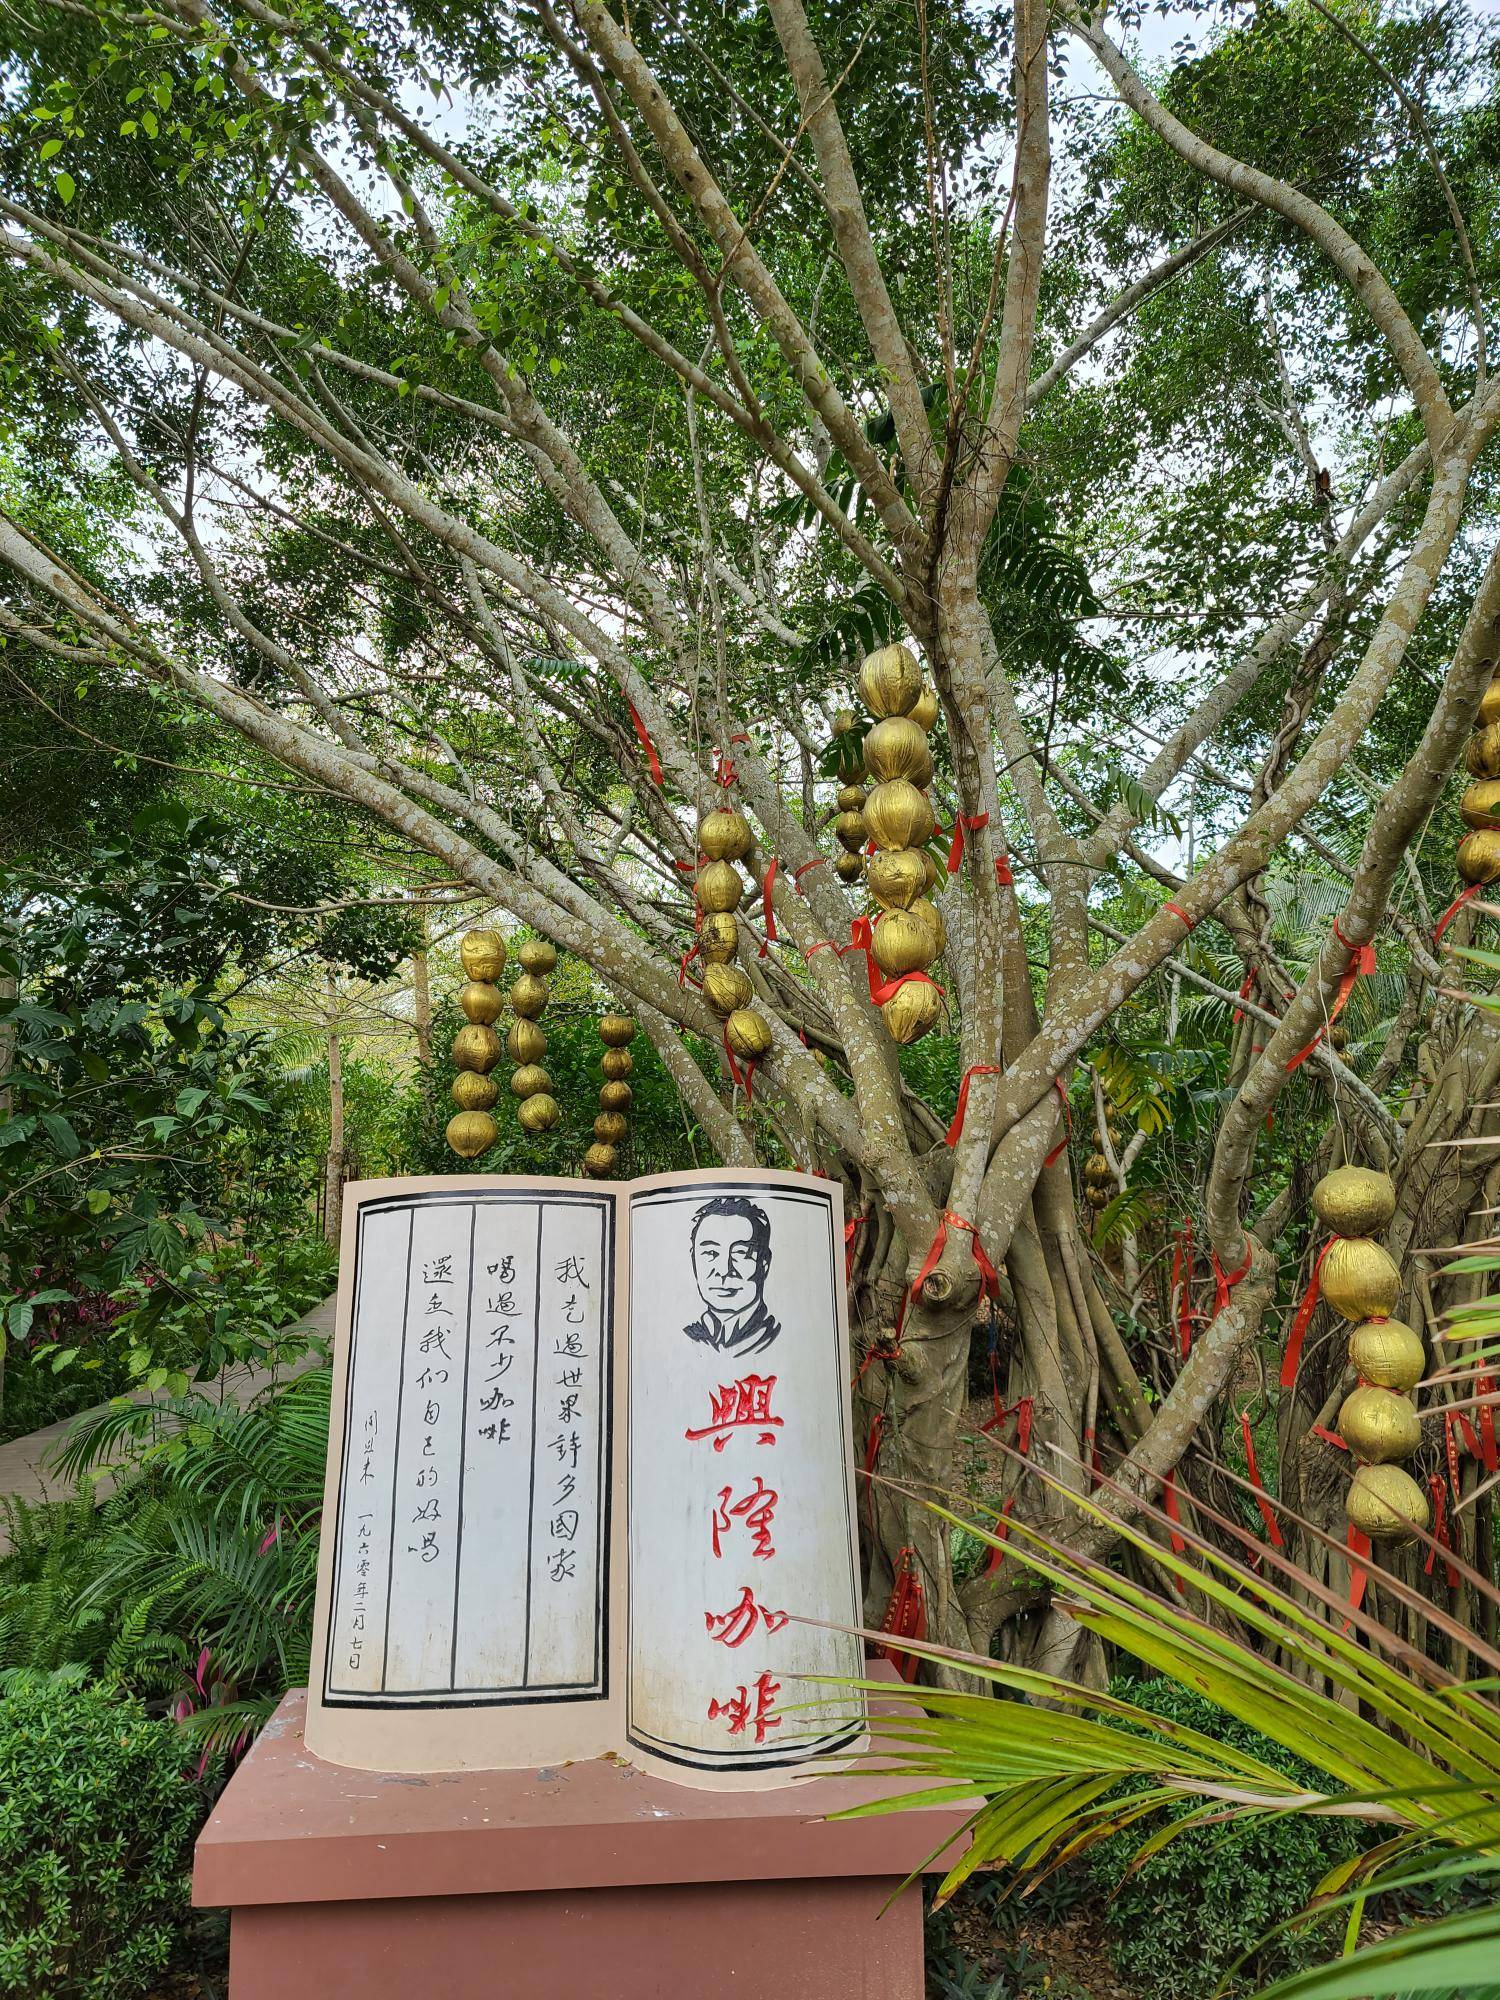 興隆咖啡
我走過世界許多國家
喝過不少咖啡
還是我們自己的好喝
周恩来 一九六零年二月七日